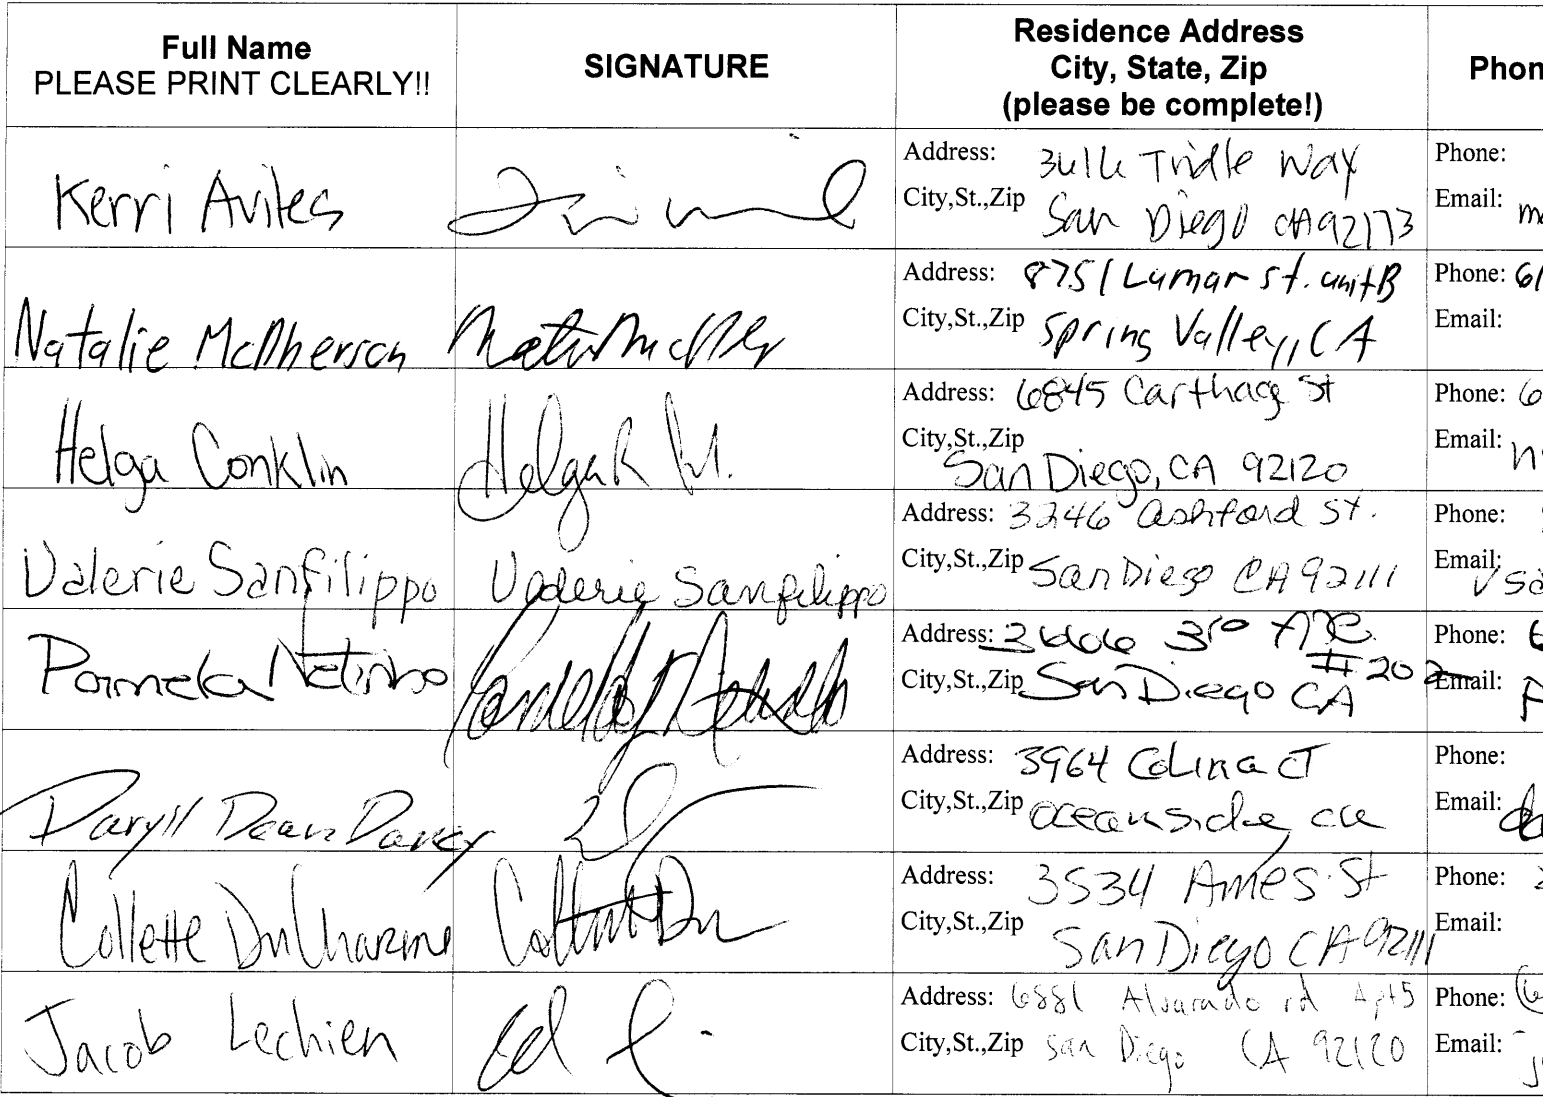 Full Name
PLEASE PRINT CLEARLY!!
SIGNATURE
Residence Address
City, State, Zip
(please be complete!)
Phon
Kerri Aviles
Address: 3616 Tridle Way
City,St.,Zip San Diego CA 92173
Phone:
Email:
Natalie McPherson
Address: 8751 Lamar St. unit B
City,St.,Zip Spring Valley, CA
Phone: 61
Email:
Helga Conklin
Helga
Address: 6845 Carthage St
City,St.,Zip San Diego, CA 92120
Phone: 6
Email:
Valerie Sanfilippo
Valerie Sanfilippo
Address: 3246 Ashford St.
City,St.,Zip San Diego CA 92111
Phone:
Email: vsa
Pamela
Pamela
Address: 3606 3rd AVE
#202
City,St.,Zip San Diego CA
Phone: 6
Email: P
Daryll Dean Darcy
Address: 3964 Colina CT
City,St.,Zip Oceanside, ca
Phone:
Email: da
Collette DuCharme
Address: 3534 Ames St
City,St.,Zip San Diego CA 92111
Phone:
Email:
Jacob Lechien
Address: 6881 Alvarado rd Apt 5
City,St.,Zip San Diego CA 92120
Phone: (6
Email: